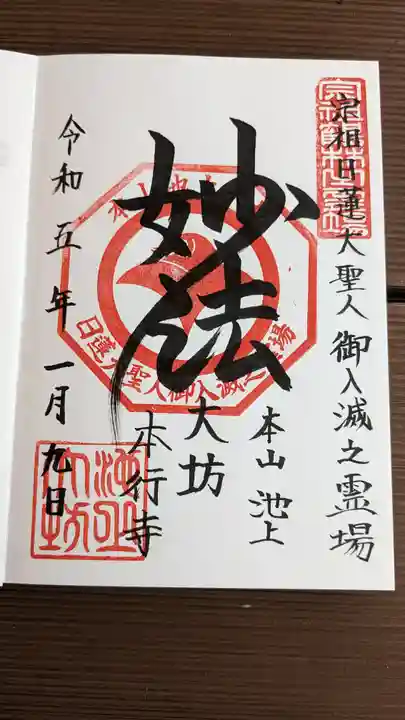 宗祖日蓮大聖人御入滅之霊場
妙法
本山 池上
大坊
本行寺
令和五年一月九日
日蓮大聖人御入滅之霊場
池上
大坊